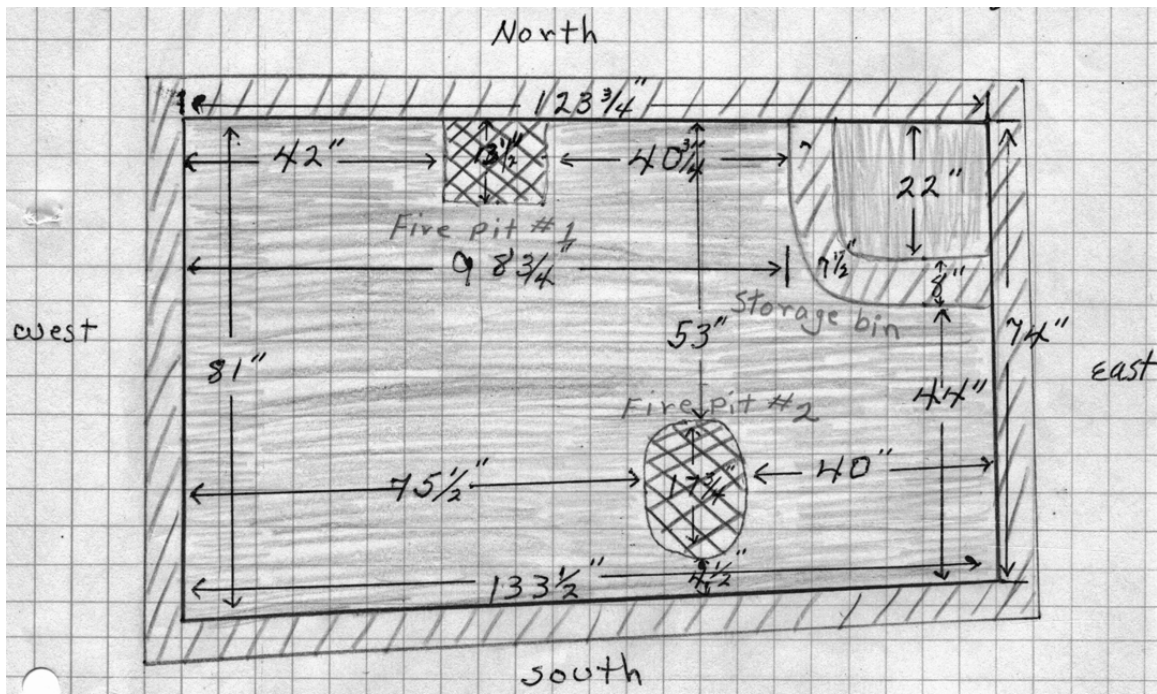 North
123 3/4"
42"
13 1/2"
40 3/4"
22"
Fire pit #1
98 3/4"
7 1/2"
8"
Storage bin
west
53"
74"
81"
east
44"
Fire pit #2
75 1/2"
17 3/4"
40"
133 1/2"
4 1/2"
south